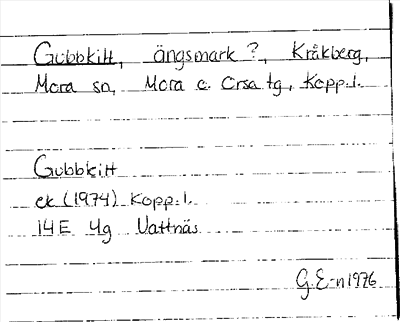 Gubbkitt, ängsmark?, Kråkberg,
Mora sn, Mora o. Orsa tg, Kopp.l.
Gubbkitt
ek (1974) Kopp.l.
14E 4g Vattnäs
G.E-n 1976